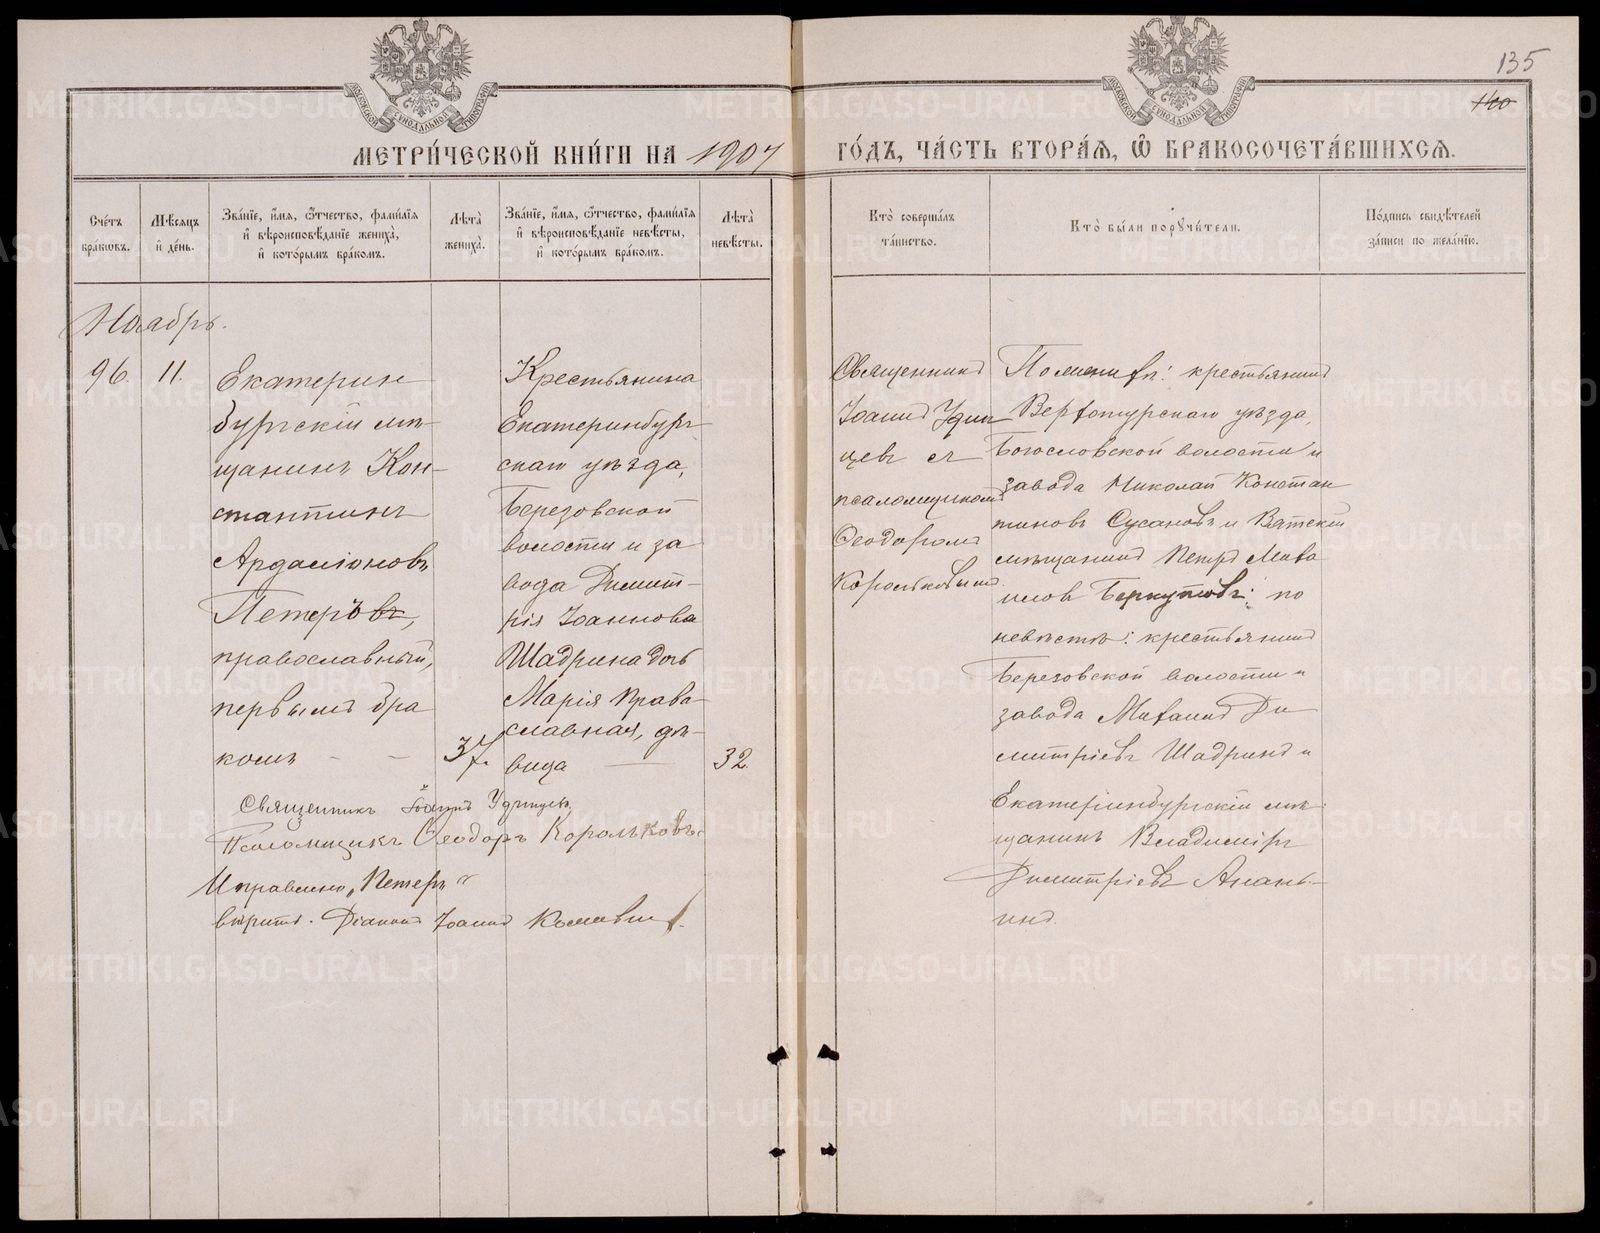 135
140
МЕТРИ́ЧЕСКОЙ КНИ́ГИ НА 1907 ГО́ДЪ, ЧА́СТЬ ВТОРА́Я, Ѽ БРАКОСОЧЕТА́ВШИХСЯ.
МОСКОВСКОЙ СѴНОДАЛЬНОЙ ТИПОГРАФІИ
МОСКОВСКОЙ СѴНОДАЛЬНОЙ ТИПОГРАФІИ
Сче́тъ бра́ковъ.
Мѣ́сяцъ и҆ де́нь.
Зва́нїе, и҆́мя, ѻ҆́тчество, фами́лїя и҆ вѣроисповѣ́данїе жениха̀, и҆ кото́рымъ бра́комъ.
Лѣта̀ жениха̀.
Зва́нїе, и҆́мя, ѻ҆́тчество, фами́лїя и҆ вѣроисповѣ́данїе невѣ́сты, и҆ кото́рымъ бра́комъ.
Лѣта̀ невѣ́сты.
Кто̀ соверша́лъ та́инство.
Кто̀ бы́ли порꙋчи́тели.
По́дпись свидѣ́телей за́писи по жела́нїю.
Ноябрь.
96.
11.
Екатерин
бургскій мѣ-
щанинъ Кон-
стантинъ
Ардаліоновъ
Петеръвъ,
православный,
первымъ бра
комъ
37.
Крестьянина
Екатеринбург
скаго уѣзда,
Березовской
волости и за
вода Димит-
рія Іоаннова
Шадрина дочь
Марія право-
славная, дѣ-
вица
32.
Священникъ
Іоаннъ Удин
цевъ съ
псаломщикомъ
Ѳеодоромъ
Корольковымъ.
По женихѣ: крестьянинъ
Верхотурскаго уѣзда,
Богословской волости и
завода Николай Констан
тиновъ Сусановъ и Вятскій
мѣщанинъ Петръ Миха
иловъ Беркутовъ; по
невѣстѣ: крестьянинъ
Березовской волости и
завода Михаилъ Ди
митріевъ Шадринъ и
Екатеринбургскій мѣ
щанинъ Владиміръ
Димитріевъ Анань-
инъ.
Священникъ Іоаннъ Удинцевъ
Псаломщикъ Ѳеодоръ Корольковъ.
Исправлено „Петеръ"
вѣрить. Діаконъ Іоаннъ
METRIKI.GASO-URAL.RU